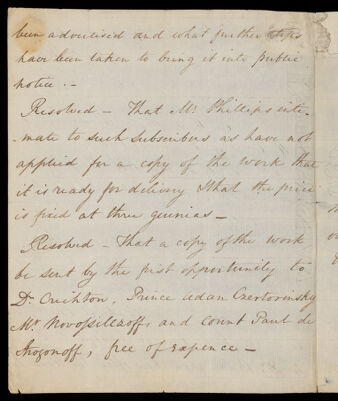 been advertised and what further steps
have been taken to bring it into public
notice. -
Resolved - That Mr. Phillips inti-
mate to such subscribers as have not
applied for a copy of the work that
it is ready for delivery & that the price
is fixed at three guineas -
Resolved - That a copy of the work
be sent by the first opportunity to
Dr. Crichton, Prince Adam Czartorinsky
Mr. Novossilzoff, and Count Paul de
Strogonoff, free of expence -